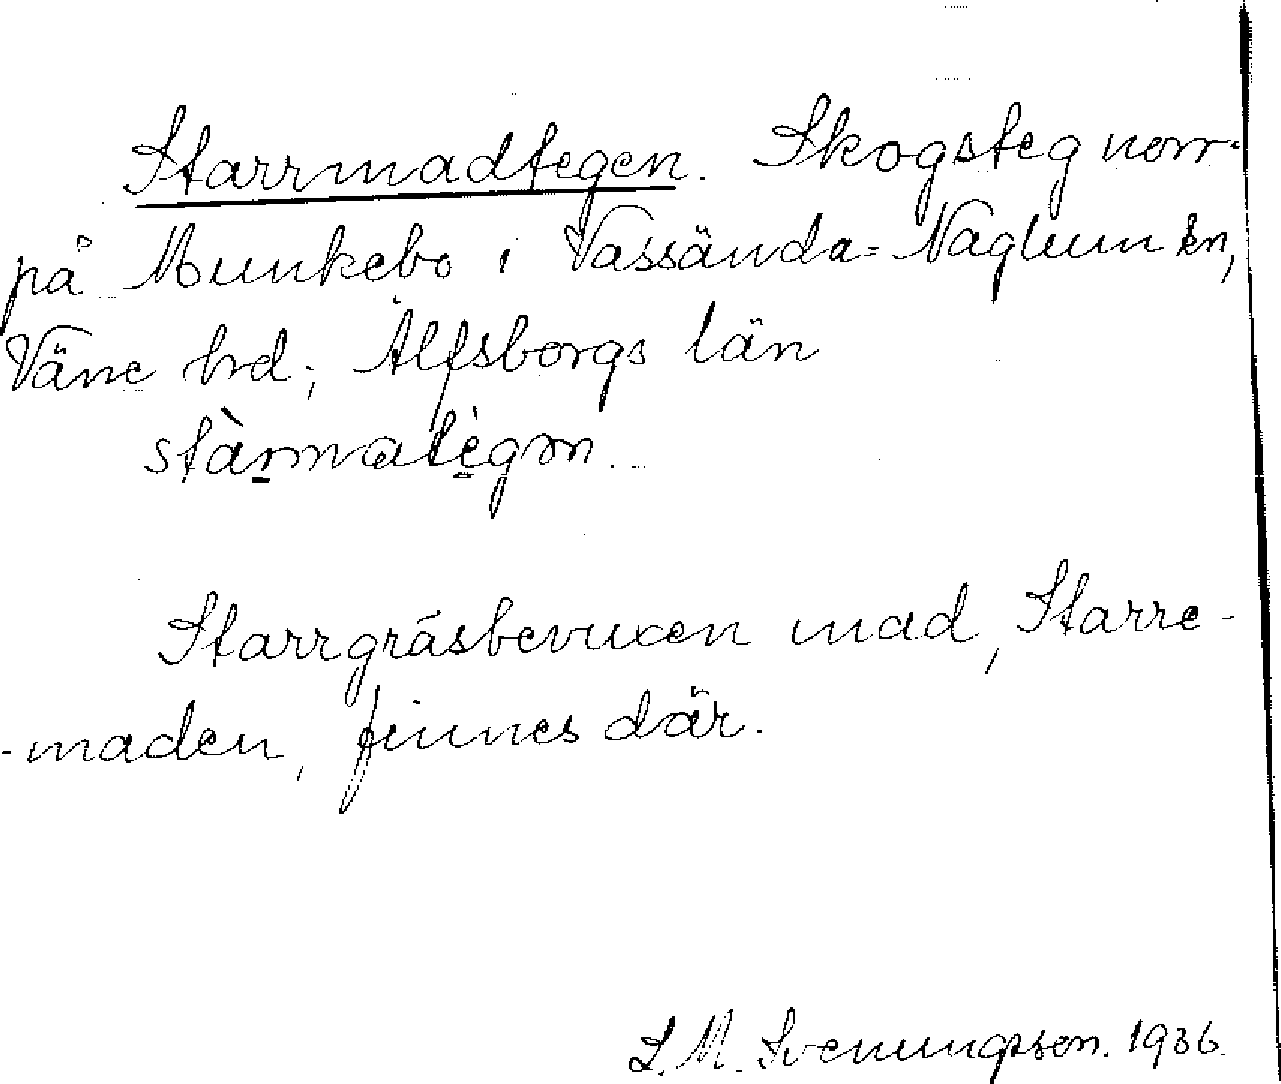 Starrmadtegen. Skogsteg norr
på Munkebo i Vassända=Naglum sn,
Väne hd, Älfsborgs län
stàrmatègən.
Starrgräsbevuxen mad, Starre-
-maden, finnes där.
S. M. Svenungsson. 1936.